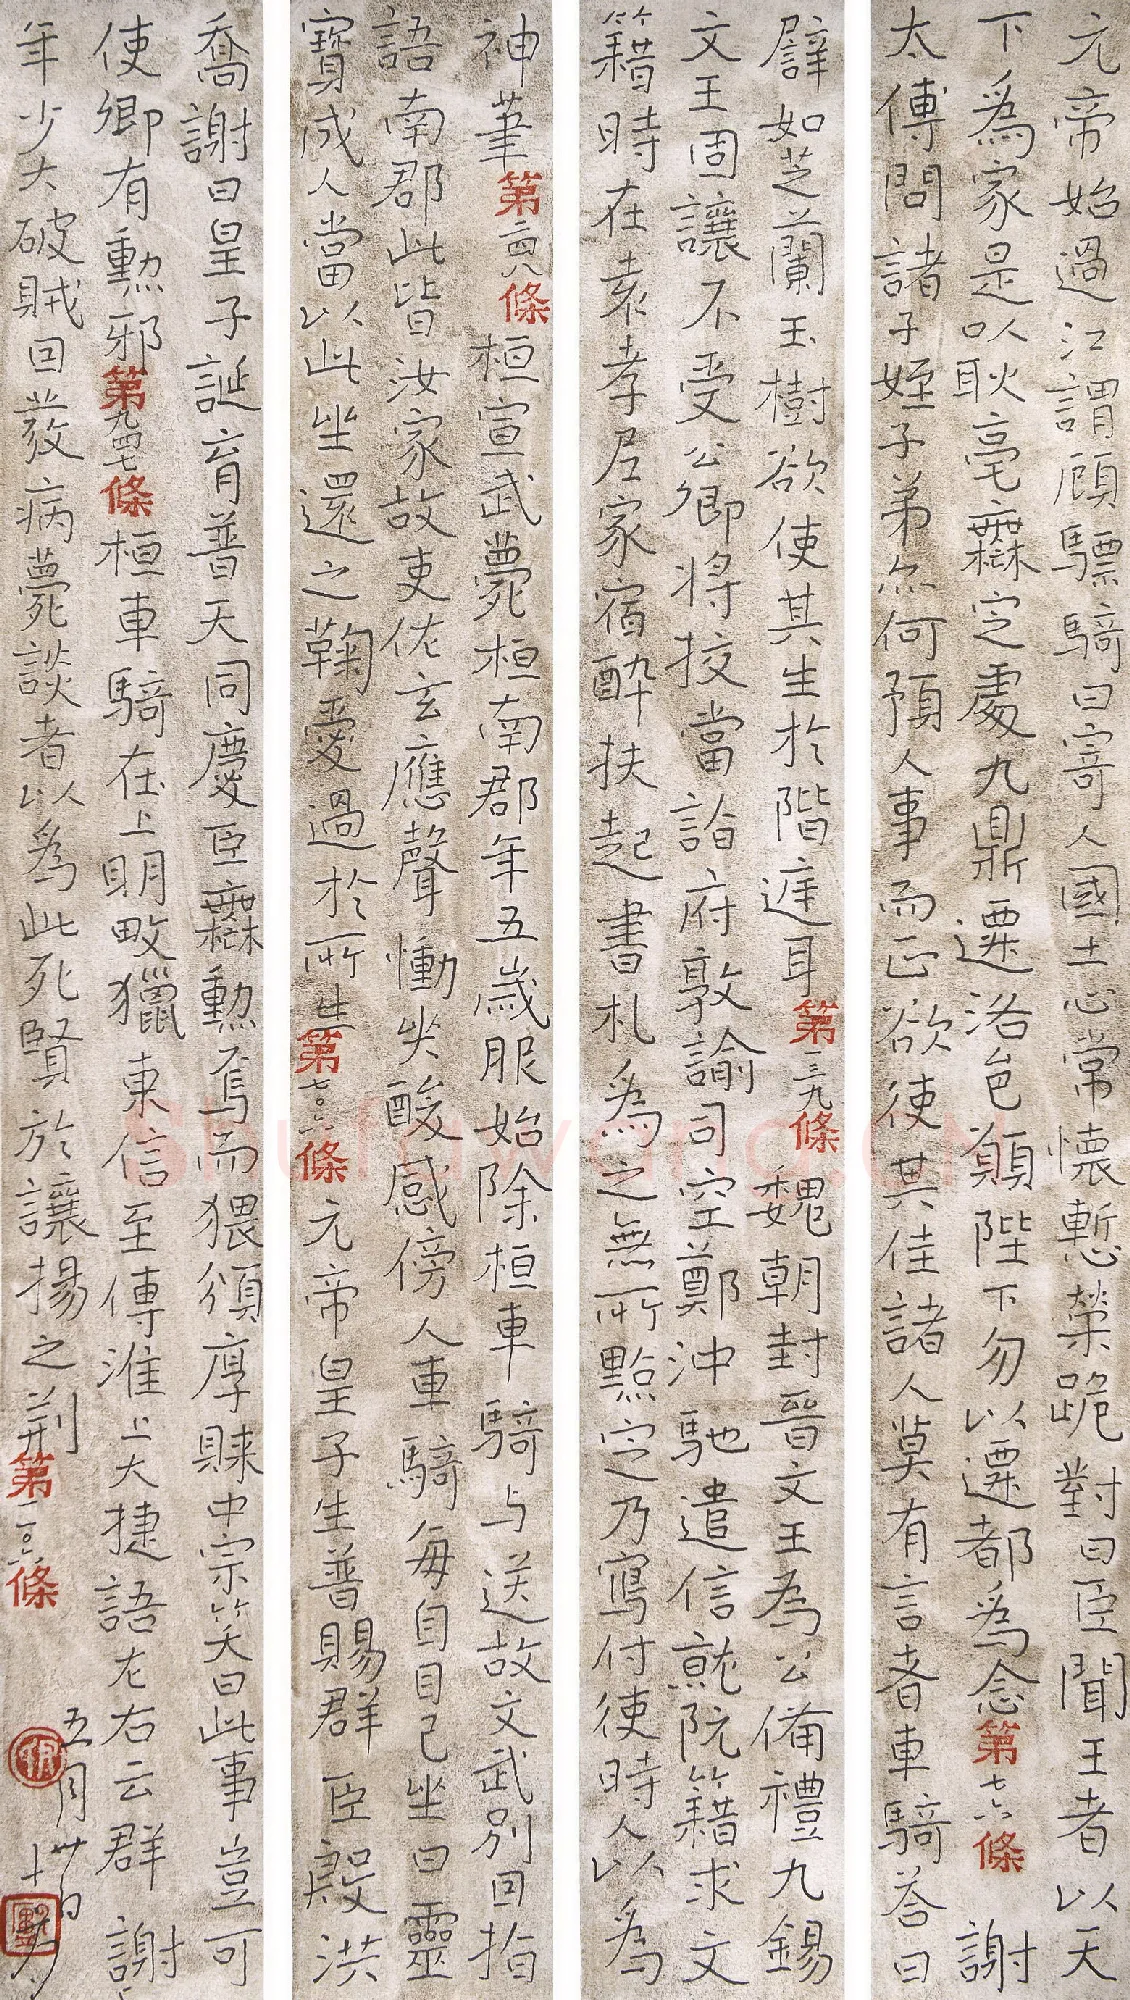 元帝始過江謂顧驃騎曰寄人國土心常懷慙榮跪對曰臣聞王者以天
下為家是以耿亳無定處九鼎遷洛邑願陛下勿以遷都為念第七六條 謝
太傅問諸子姪子弟亦何預人事而正欲使其佳諸人莫有言者車騎荅曰
譬如芝蘭玉樹欲使其生於階庭耳第三九條魏朝封晉文王為公備禮九錫
文王固讓不受公卿將挍當詣府敦諭司空鄭沖馳遣信就阮籍求文
籍時在袁孝尼家宿醉扶起書札為之無所點定乃寫付使時人以為
神筆第二四八條桓宣武薨桓南郡年五歲服始除桓車騎与送故文武別囙指
語南郡此皆汝家故吏佐玄應聲慟哭酸感傍人車騎每自目己坐曰靈
寶成人當以此坐還之鞠愛過於所生第七〇六條元帝皇子生普賜群臣殷洪
喬謝曰皇子誕育普天同慶臣無勲焉而猥頒厚賚中宗笑曰此事豈可
使卿有勲邪第九四七條桓車騎在上明畋獵東信至傳淮上大捷語左右云群謝
年少大破賊囙發病薨談者以為此死賢於讓揚之荊第一〇八條
五月廿
Shufawang.CN